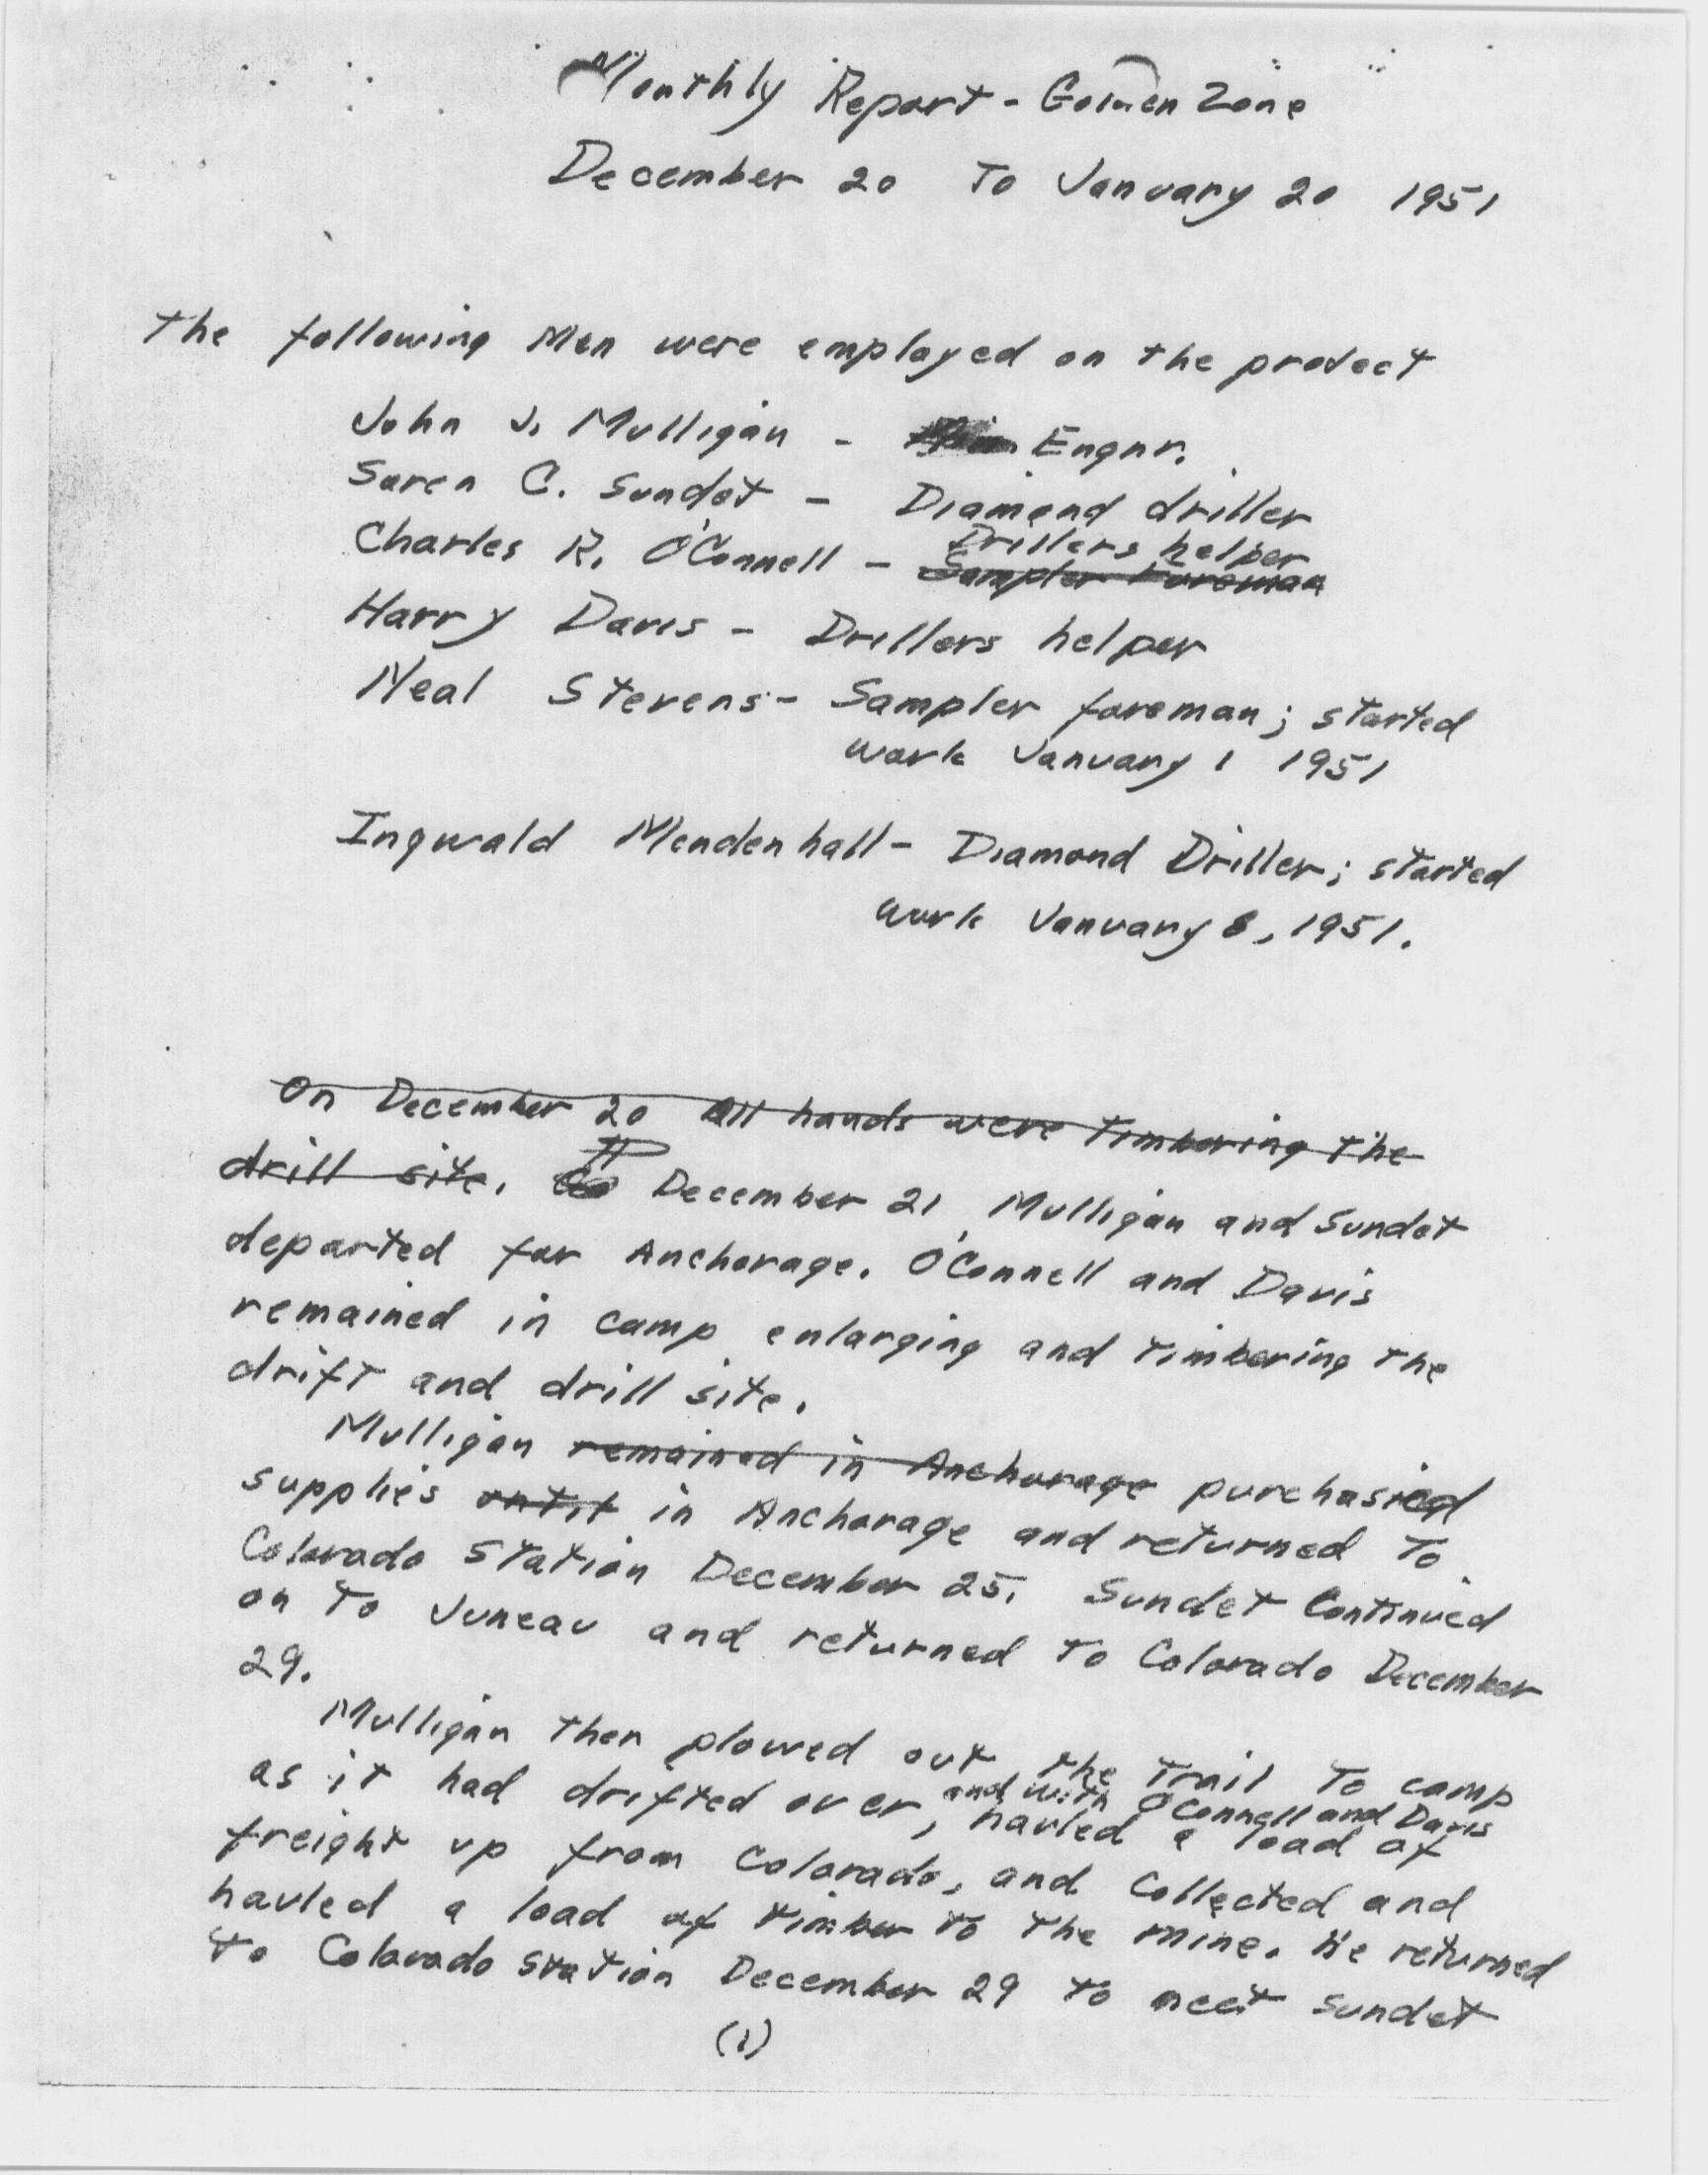 Monthly Report - Golden Zone
December 20 To January 20 1951
The following Men were employed on the project
John J. Mulligan - Engnr.
Soren C. Sundet - Diamond driller
Drillers helper
Charles R. O'Connell - Sampler Foreman
Harry Davis - Drillers helper
Neal Stevens - Sampler foreman; started
work January 1 1951
Ingwald Mendenhall - Diamond Driller; started
work January 8, 1951.
On December 20 All hands were Timbering the
drill site. December 21, Mulligan and Sundet
departed for Anchorage. O'Connell and Davis
remained in camp enlarging and timbering the
drift and drill site.
Mulligan remained in Anchorage purchased
supplies until in Anchorage and returned to
Colorado Station December 25. Sundet Continued
on to Juneau and returned to Colorado December
29.
Mulligan then plowed out the trail to camp
and with O'Connell and Davis
as it had drifted over, hauled a load of
freight up from Colorado, and Collected and
hauled a load of timber to the mine. He returned
to Colorado Station December 29 to meet Sundet
(1)